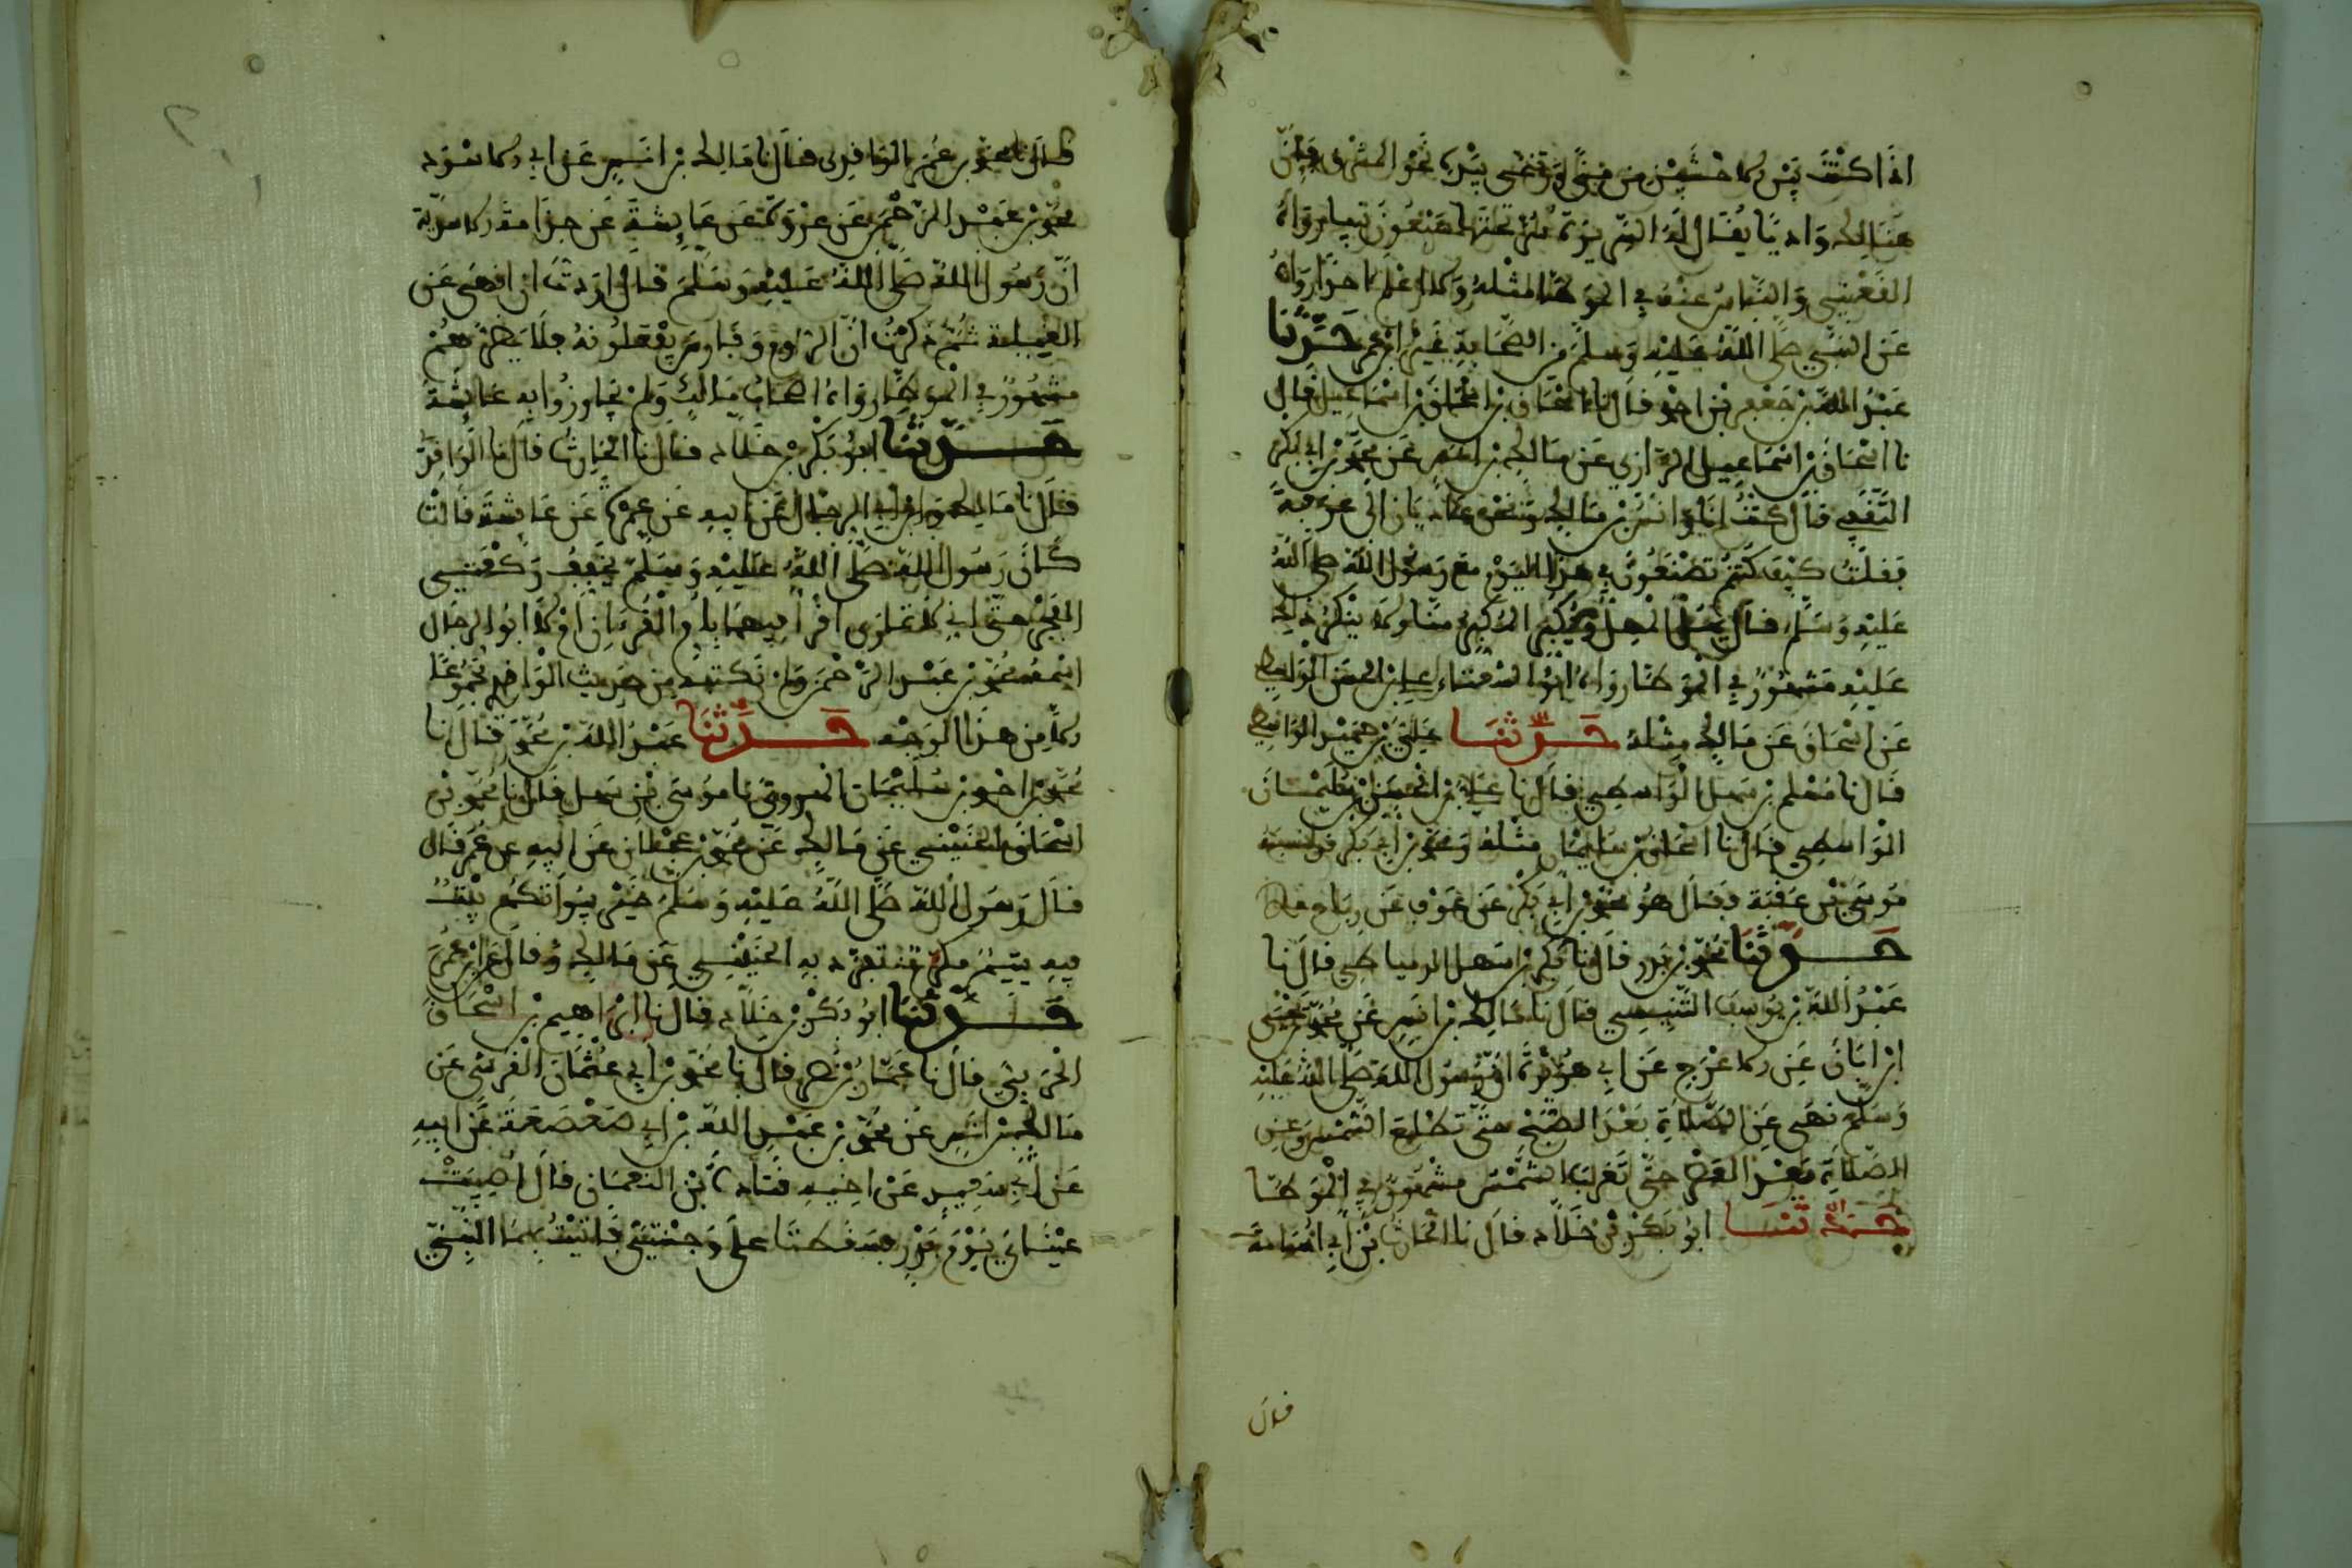 اذا كنت بين الاخشبين من منى ونفخ بيده نحو المشرق فان
هنالك واديا يقال له السرر به تحتها سبعون نبيا رواه
القعنبي والناس عنه في الموطا مثله ولا اعلم احدا رواه
عن النبي صلى الله عليه وسلم من الصحابة غير ابن عمر حدثنا
عبد الله بن جعفر بن احمد قال نا اسحاق بن اسماعيل قال
نا اسحاق بن اسماعيل الرازي عن مالك بن انس عن محمد بن ابي بكر
الثقفي قال كنت انا وانس بن مالك ونحن غاديان الى عرفة
فقلت كيف كنتم تصنعون في هذا اليوم مع رسول الله صلى الله
عليه وسلم قال يهل المهل ويكبر المكبر منا ولا ينكر ذلك
عليه مشهور في الموطا رواه علي بن الحسن الواسطي
عن اسحاق عن مالك مثله حدثنا علي بن حميد الواسطي
قال نا مسلم بن سهل الواسطي قال نا علي بن الحسن بن سليمان
الواسطي قال نا اسحاق بن سليمان مثله ومحمد بن ابي بكر
موسى بن عقبة فقال هو محمد بن ابي بكر عن عوف عن رباح
حدثنا محمد بن بدر قال نا بكر بن سهل الدمياطي قال نا
عبد الله بن يوسف التنيسي قال نا مالك بن انس عن محمد بن يحيى
ابن حبان عن الاعرج عن ابي هريرة ان رسول الله صلى الله عليه
وسلم نهى عن الصلاة بعد الصبح حتى تطلع الشمس وعن
الصلاة بعد العصر حتى تغرب الشمس مشهور في الموطا
حدثنا ابو بكر بن خلاد قال نا الحارث بن ابي اسامة
قال
قال نا محمد بن عمر الواقدي قال نا مالك بن انس عن ابي الاسود
محمد بن عبد الرحمن عن عروة عن عايشة عن جدامة الاسدية
ان رسول الله صلى الله عليه وسلم قال اردت ان انهى عن
الغيلة ثم ذكرت ان الروم وفارس يفعلونه فلا يضرهم
مشهور في الموطا رواه اصحاب مالك ولم يجاوزوا به عايشة
حدثنا ابو بكر بن خلاد قال نا الحارث قال نا الواقدي
قال نا مالك وابن ابي الرجال عن ابيه عن عمرة عن عايشة قالت
كان رسول الله صلى الله عليه وسلم يخفف ركعتي
الفجر حتى اني لاقول اقرا فيهما بام القرءان ام لا ابو الرجال
اسمه محمد بن عبد الرحمن ولم نكتبه من حديث الواقدي مجموعا
الا من هذا الوجه حدثنا عبد الله بن محمد قال نا
محمد بن احمد بن سليمان الهروي نا موسى بن سهل قال نا محمد بن
اسحاق الحنيني عن مالك عن محمد بن عجلان عن ابيه عن عمر قال
قال رسول الله صلى الله عليه وسلم خير بيوتكم بيت
فيه يتيم مكرم تفرد به الحنيني عن مالك وقال عن ابن عمر
حدثنا ابو بكر بن خلاد قال نا ابراهيم بن اسحاق
الحربي قال نا عمار بن نصر قال نا محمد بن ابي عثمان القرشي عن
مالك بن انس عن محمد بن عبد الله بن ابي صعصعة عن ابيه
عن ابي سعيد عن اخيه قتادة بن النعمان قال اصيبت
عيناي يوم بدر فسقطتا على وجنتي فاتيت بهما النبي